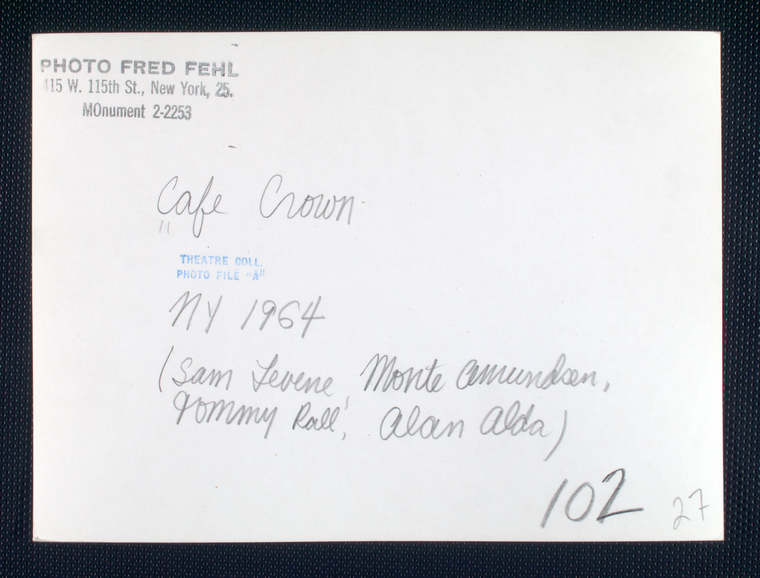 PHOTO FRED FEHL
415 W. 115th St., New York, 25.
MOnument 2-2253
Cafe Crown
THEATRE COLL.
PHOTO FILE "A"
NY 1964
(Sam Levene, Monte Amundsen,
Tommy Rall, Alan Alda)
102
27